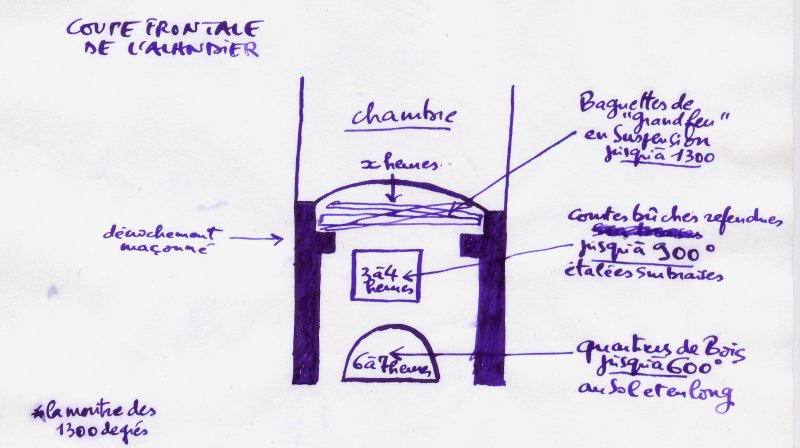 COUPE FRONTALE
DE L'ALANDIER
chambre
x heures
Baguettes de
"grand feu"
en suspension
jusqu'à 1300
décrochement
maçonné
courtes bûches refendues
jusqu'à 900°
étalées sur braises
3 à 4
heures
quartiers de Bois
jusqu'à 600°
au sol et en long
6 à 7 heures
la montre des
1300 degrés